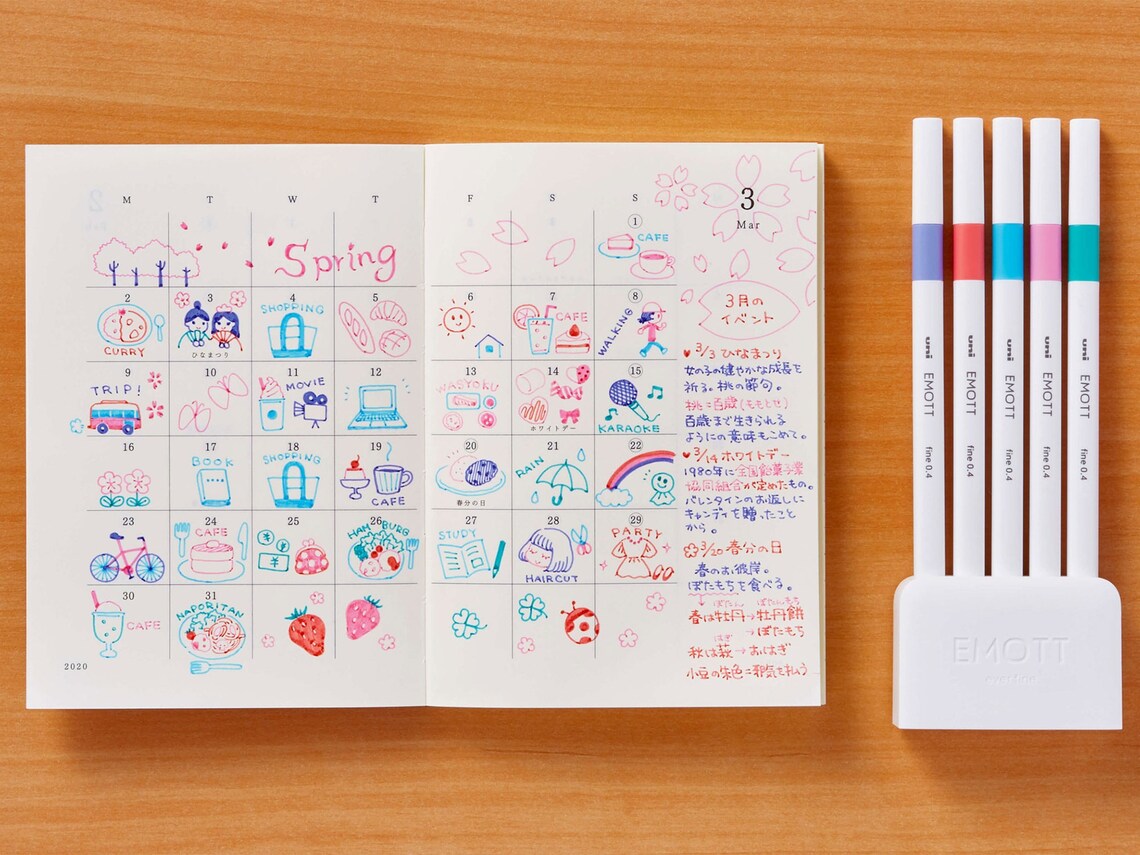 M T W T
Spring
2 3 4 5
CURRY
ひなまつり
SHOPPING
9 10 11 12
TRIP!
MOVIE
16 17 18 19
BOOK
SHOPPING
CAFE
23 24 25 26
CAFE
¥
HAMBURG
30 31
CAFE
NAPORITAN
2020
F S S
1
CAFE
6 7 8
CAFE
WALKING
13 14 15
WASYOKU
ホワイトデー
KARAOKE
20 21 22
春分の日
RAIN
27 28 29
STUDY
HAIRCUT
PARTY
3
Mar
3月の
イベント
3/3 ひなまつり
女の子の健やかな成長を
祈る。桃の節句。
桃=百歳(ももとせ)
百歳まで生きられる
ようにの意味もこめて。
3/14 ホワイトデー
1980年に全国飴菓子業
協同組合が定めたもの。
バレンタインのお返しに
キャンディを贈ったこと
から。
3/20 春分の日
春のお彼岸。
ぼたもちを食べる。
ぼたん ぼたんもち
春は牡丹→牡丹餅
→ぼたもち
はぎ
秋は萩→おはぎ
小豆の朱色=邪気を払う
uni EMOTT fine 0.4
uni EMOTT fine 0.4
uni EMOTT fine 0.4
uni EMOTT fine 0.4
uni EMOTT fine 0.4
EMOTT